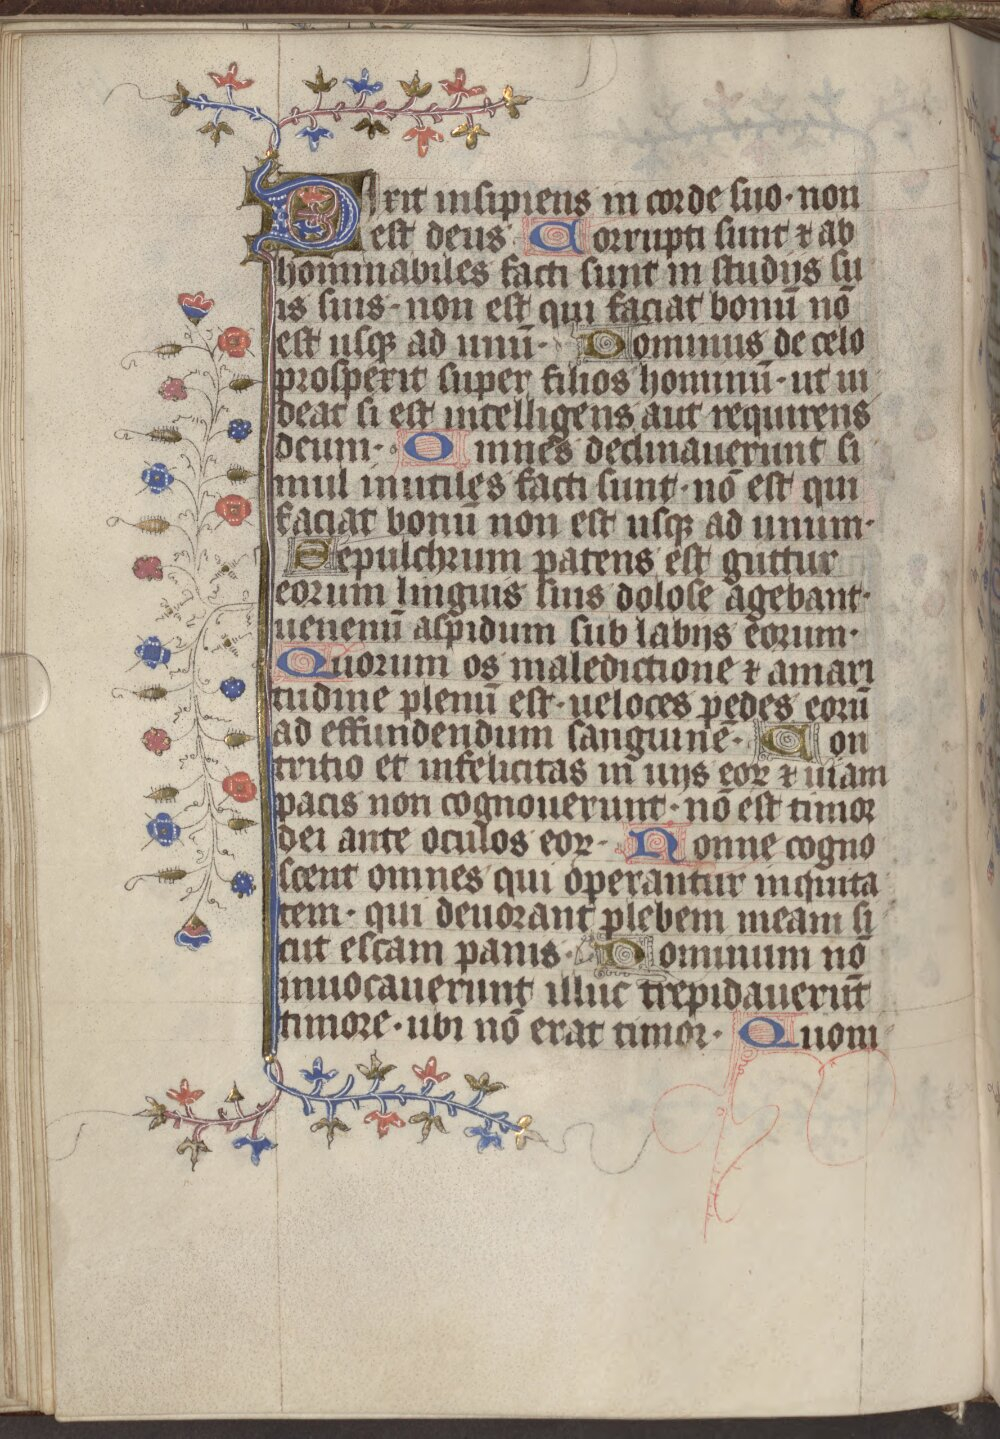 Dixit insipiens in corde suo · non
est deus Corrupti sunt ⁊ ab
hominabiles facti sunt in studijs su
is suis · non est qui faciat bonū nō
est usqꝫ ad unū · Dominus de celo
prospexit super filios hominū · ut ui
deat si est intelligens aut requirens
deum · Omnes declinauerunt si
mul inutiles facti sunt · nō est qui
faciat bonū non est usqꝫ ad unum ·
Sepulchrum patens est guttur
eorum linguis suis dolose agebant ·
uenenū aspidum sub labijs eorum ·
Quorum os maledictione ⁊ amari
tudine plenū est · ueloces pedes eorū
ad effundendum sanguinē · Con
tritio et infelicitas in uijs eoꝝ ⁊ uiam
pacis non cognouerunt · nō est timor
dei ante oculos eoꝝ · Nonne cogno
scent omnes qui operantur iniquita
tem · qui deuorant plebem meam si
cut escam panis · Dominum nō
inuocauerunt illuc trepidauerūt
timore · ubi nō erat timor · Quoni